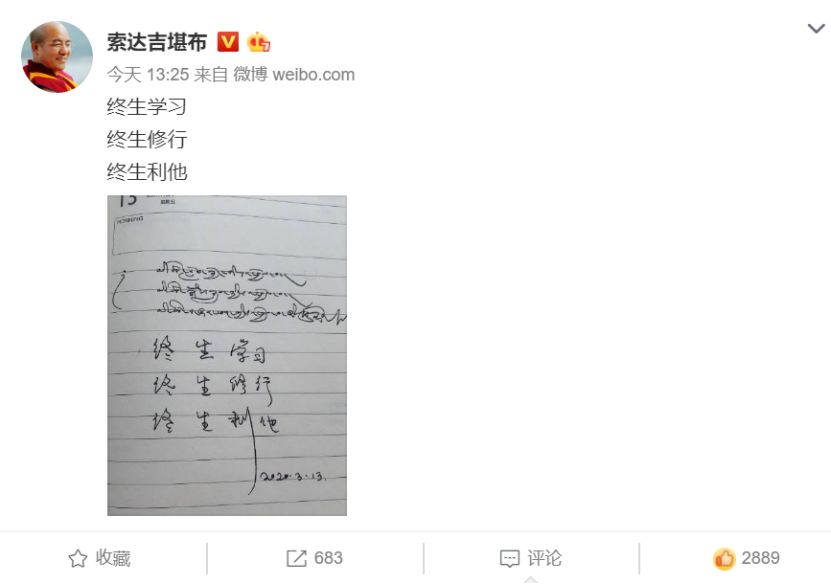 索达吉堪布
今天 13:25 来自 微博 weibo.com
终生学习
终生修行
终生利他
13
MORNING
终生学习
终生修行
终生利他
2020.3.13.
收藏
683
评论
2889